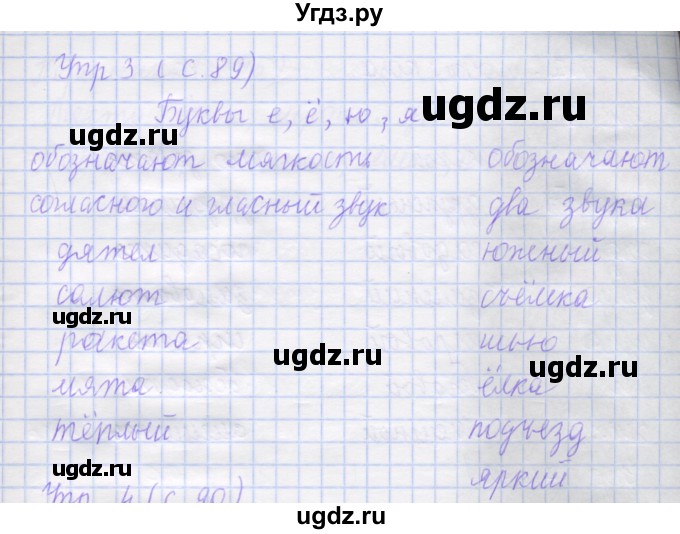 Угдз.ру
Упр 3 (с. 89)
Буквы е, ё, ю, я
ugdz.ru
ugdz.ru
обозначают мягкость
обозначают
согласного и гласный звук
два звука
дятел
южный
салют
съёмка
ugdz.ru
ракета
шью
ugdz.ru
мята
ёлка
тёплый
подъезд
ugdz.ru
яркий
Упр 4 (с. 90)
ugdz.ru